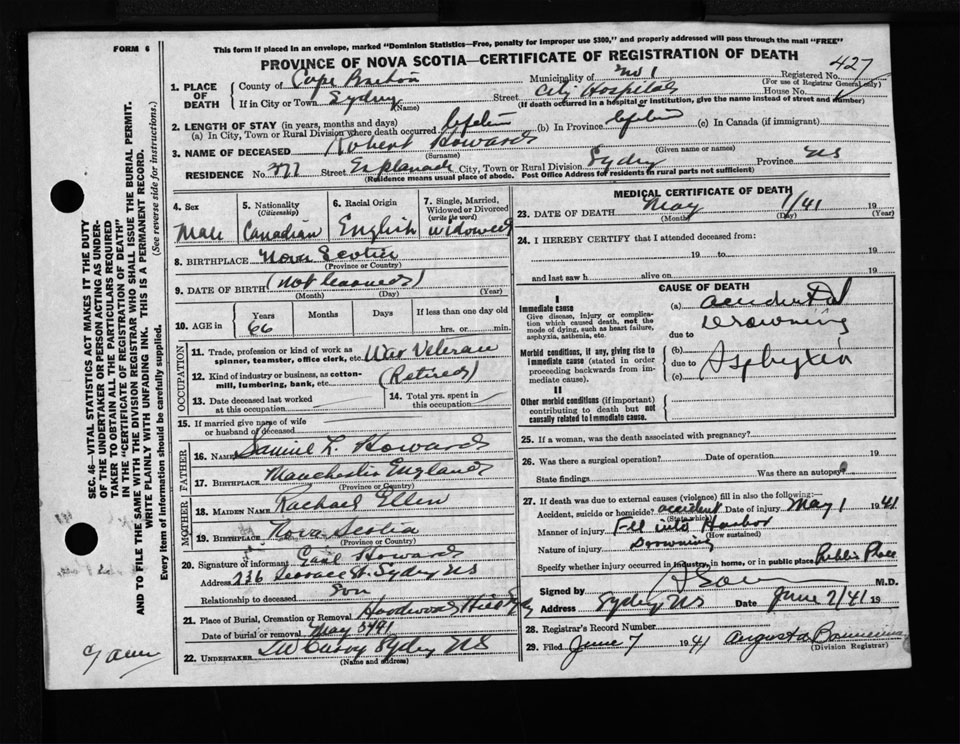 FORM 6
This form if placed in an envelope, marked "Dominion Statistics—Free, penalty for improper use $300," and properly addressed will pass through the mail "FREE"
PROVINCE OF NOVA SCOTIA—CERTIFICATE OF REGISTRATION OF DEATH
Registered No. 427
(For use of Registrar General only)
1. PLACE OF DEATH
County of Cape Breton Municipality of No 1
If in City or Town Sydney Street City Hospital House No.
(Name) (If death occurred in a hospital or institution, give the name instead of street and number)
2. LENGTH OF STAY (in years, months and days)
(a) In City, Town or Rural Division where death occurred (b) In Province (c) In Canada (if immigrant)
3. NAME OF DECEASED Robert Howard
(Surname) (Given name or names)
RESIDENCE No. 377 Street Esplanade City, Town or Rural Division Sydney Province NS
(Residence means usual place of abode. Post Office Address for residents in rural parts not sufficient)
4. Sex
Male
5. Nationality
(Citizenship)
Canadian
6. Racial Origin
English
7. Single, Married, Widowed or Divorced
(write the word)
Widowed
8. BIRTHPLACE Nova Scotia
(Province or Country)
9. DATE OF BIRTH (not learned)
(Month) (Day) (Year)
10. AGE in
Years Months Days If less than one day old
66 hrs. or min.
OCCUPATION
11. Trade, profession or kind of work as spinner, teamster, office clerk, etc. War Veteran
12. Kind of industry or business, as cotton-mill, lumbering, bank, etc. (Retired)
13. Date deceased last worked at this occupation
14. Total yrs. spent in this occupation
15. If married give name of wife or husband of deceased
FATHER
16. NAME Samuel L. Howard
17. BIRTHPLACE Manchester England
MOTHER
18. MAIDEN NAME Rachael Ellen
19. BIRTHPLACE Nova Scotia
(Province or Country)
20. Signature of informant Howard
Address 236 St. Sydney NS
Relationship to deceased Son
21. Place of Burial, Cremation or Removal Hardwood Hill
Date of burial or removal May 3/41
22. UNDERTAKER Sydney NS
(Name and address)
MEDICAL CERTIFICATE OF DEATH
23. DATE OF DEATH May 1/41 19
(Month) (Day) (Year)
24. I HEREBY CERTIFY that I attended deceased from:
19 to 19
and last saw h alive on 19
CAUSE OF DEATH
I
Immediate cause
Give disease, injury or complication which caused death, not the mode of dying, such as heart failure, asphyxia, asthenia, etc.
(a) accidental
Drowning
due to
Morbid conditions, if any, giving rise to immediate cause (stated in order proceeding backwards from immediate cause).
(b)
due to Asphyxia
(c)
II
Other morbid conditions (if important) contributing to death but not causally related to immediate cause.
25. If a woman, was the death associated with pregnancy?
26. Was there a surgical operation? Date of operation 19
State findings Was there an autopsy
27. If death was due to external causes (violence) fill in also the following:—
Accident, suicide or homicide? accident Date of injury May 1 1941
(State which)
Manner of injury Fell into Harbor
(How sustained)
Nature of injury Drowning
Specify whether injury occurred in industry, in home, or in public place Public Place
Signed by M.D.
Address Sydney NS Date June 2/41 19
28. Registrar's Record Number
29. Filed June 7 1941 Augusta
(Division Registrar)
SEC. 46—VITAL STATISTICS ACT MAKES IT THE DUTY
OF THE UNDERTAKER OR PERSON ACTING AS UNDER-
TAKER TO OBTAIN ALL THE PARTICULARS REQUIRED
IN THE "CERTIFICATE OF REGISTRATION OF DEATH"
AND TO FILE THE SAME WITH THE DIVISION REGISTRAR WHO SHALL ISSUE THE BURIAL PERMIT.
WRITE PLAINLY WITH UNFADING INK. THIS IS A PERMANENT RECORD.
Every item of information should be carefully supplied. (See reverse side for instructions.)